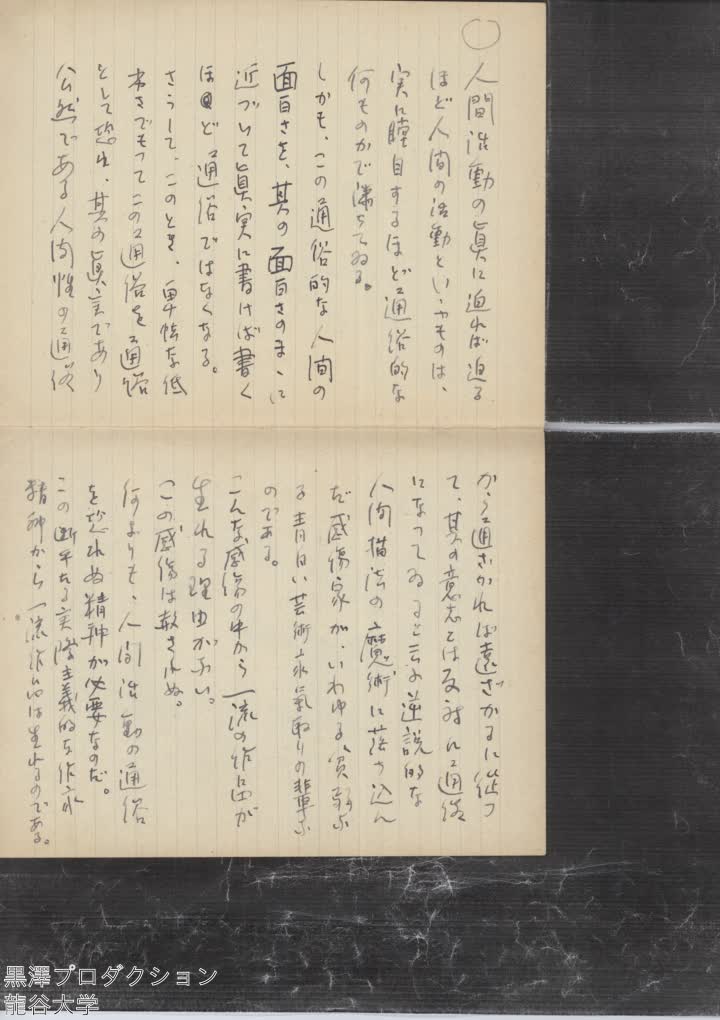 ○
人間活動の眞に迫れば迫る
ほど人間の活動といふものは、
実に瞠目するほど通俗的な
何ものかで満ちてゐる。
しかも、この通俗的な人間の
面白さを、其の面白さのまゝに
近づいて眞実に書けば書く
ほど通俗ではなくなる。
さうして、このとき、卑怯な低
劣さでもつてこの通俗を通俗
として恐れ、其の眞実であり
公然である人間性の通俗
から遠ざかれば遠ざかるに従つ
て、其の意志とは反対に通俗
になつてゐると云ふ逆説的な
人間描法の魔術に落ち込ん
だ感傷家が、いわゆる貧弱な
る青白い芸術家気取りの輩な
のである。
こんな感傷の中から一流の作品が
生れる理由がない。
この感傷は赦されぬ。
何よりも、人間活動の通俗
を恐れぬ精神が必要なのだ。
この断乎たる実際主義的な作家
精神から一流作品は生れるのである。
黒澤プロダクション
龍谷大学